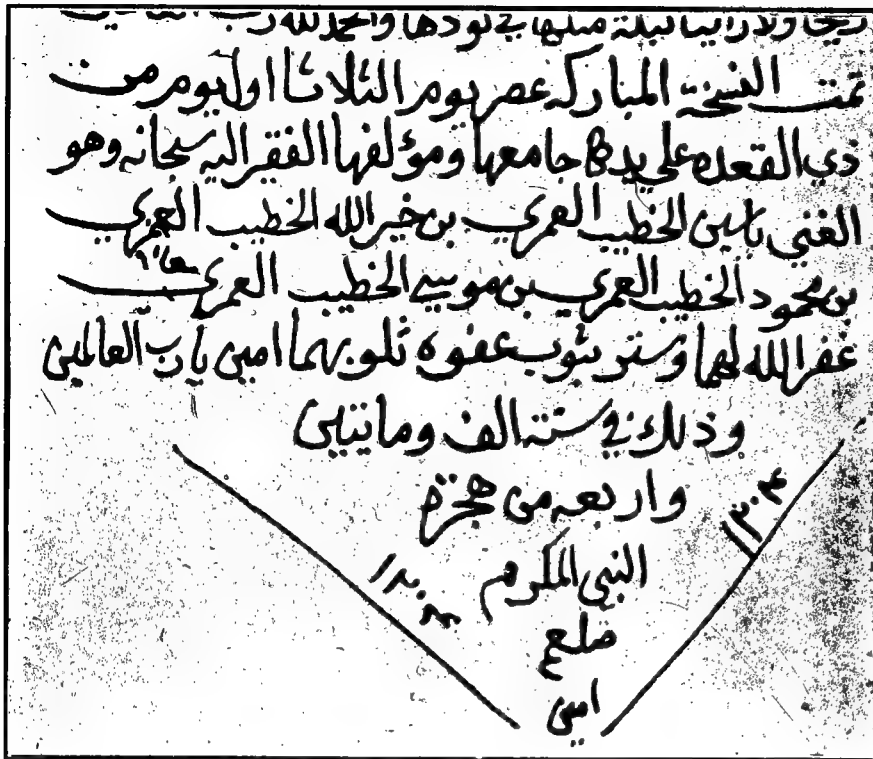 ريحا ولا راينا ليلة مثلها في نودها والحمد لله رب العالمين
تمت النسخة المباركه عصر يوم الثلاثا اول يوم من
ذي القعده علي يد جامعها ومؤلفها الفقير اليه سبحانه وهو
الغني ياسين الخطيب العمري بن خير الله الخطيب العمري
بن محمود الخطيب العمري بن موسي الخطيب العمري
غفر الله لهما وستر بثوب عفوه ذلوبهما امين يا رب العالمين
وذلك في سنة الف ومايتين
واربعه من هجرة
النبي المكرم
صلعم
امين
١٢٠٤
١٢٠٤